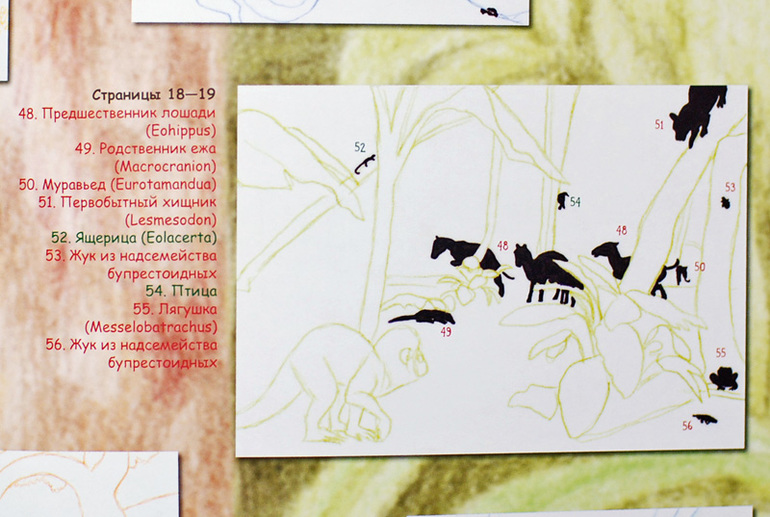 Страницы 18—19
48. Предшественник лошади
(Eohippus)
49. Родственник ежа
(Macrocranion)
50. Муравьед (Eurotamandua)
51. Первобытный хищник
(Lesmesodon)
52. Ящерица (Eolacerta)
53. Жук из надсемейства
бупрестоидных
54. Птица
55. Лягушка
(Messelobatrachus)
56. Жук из надсемейства
бупрестоидных
51
52
53
54
48
48
50
49
55
56